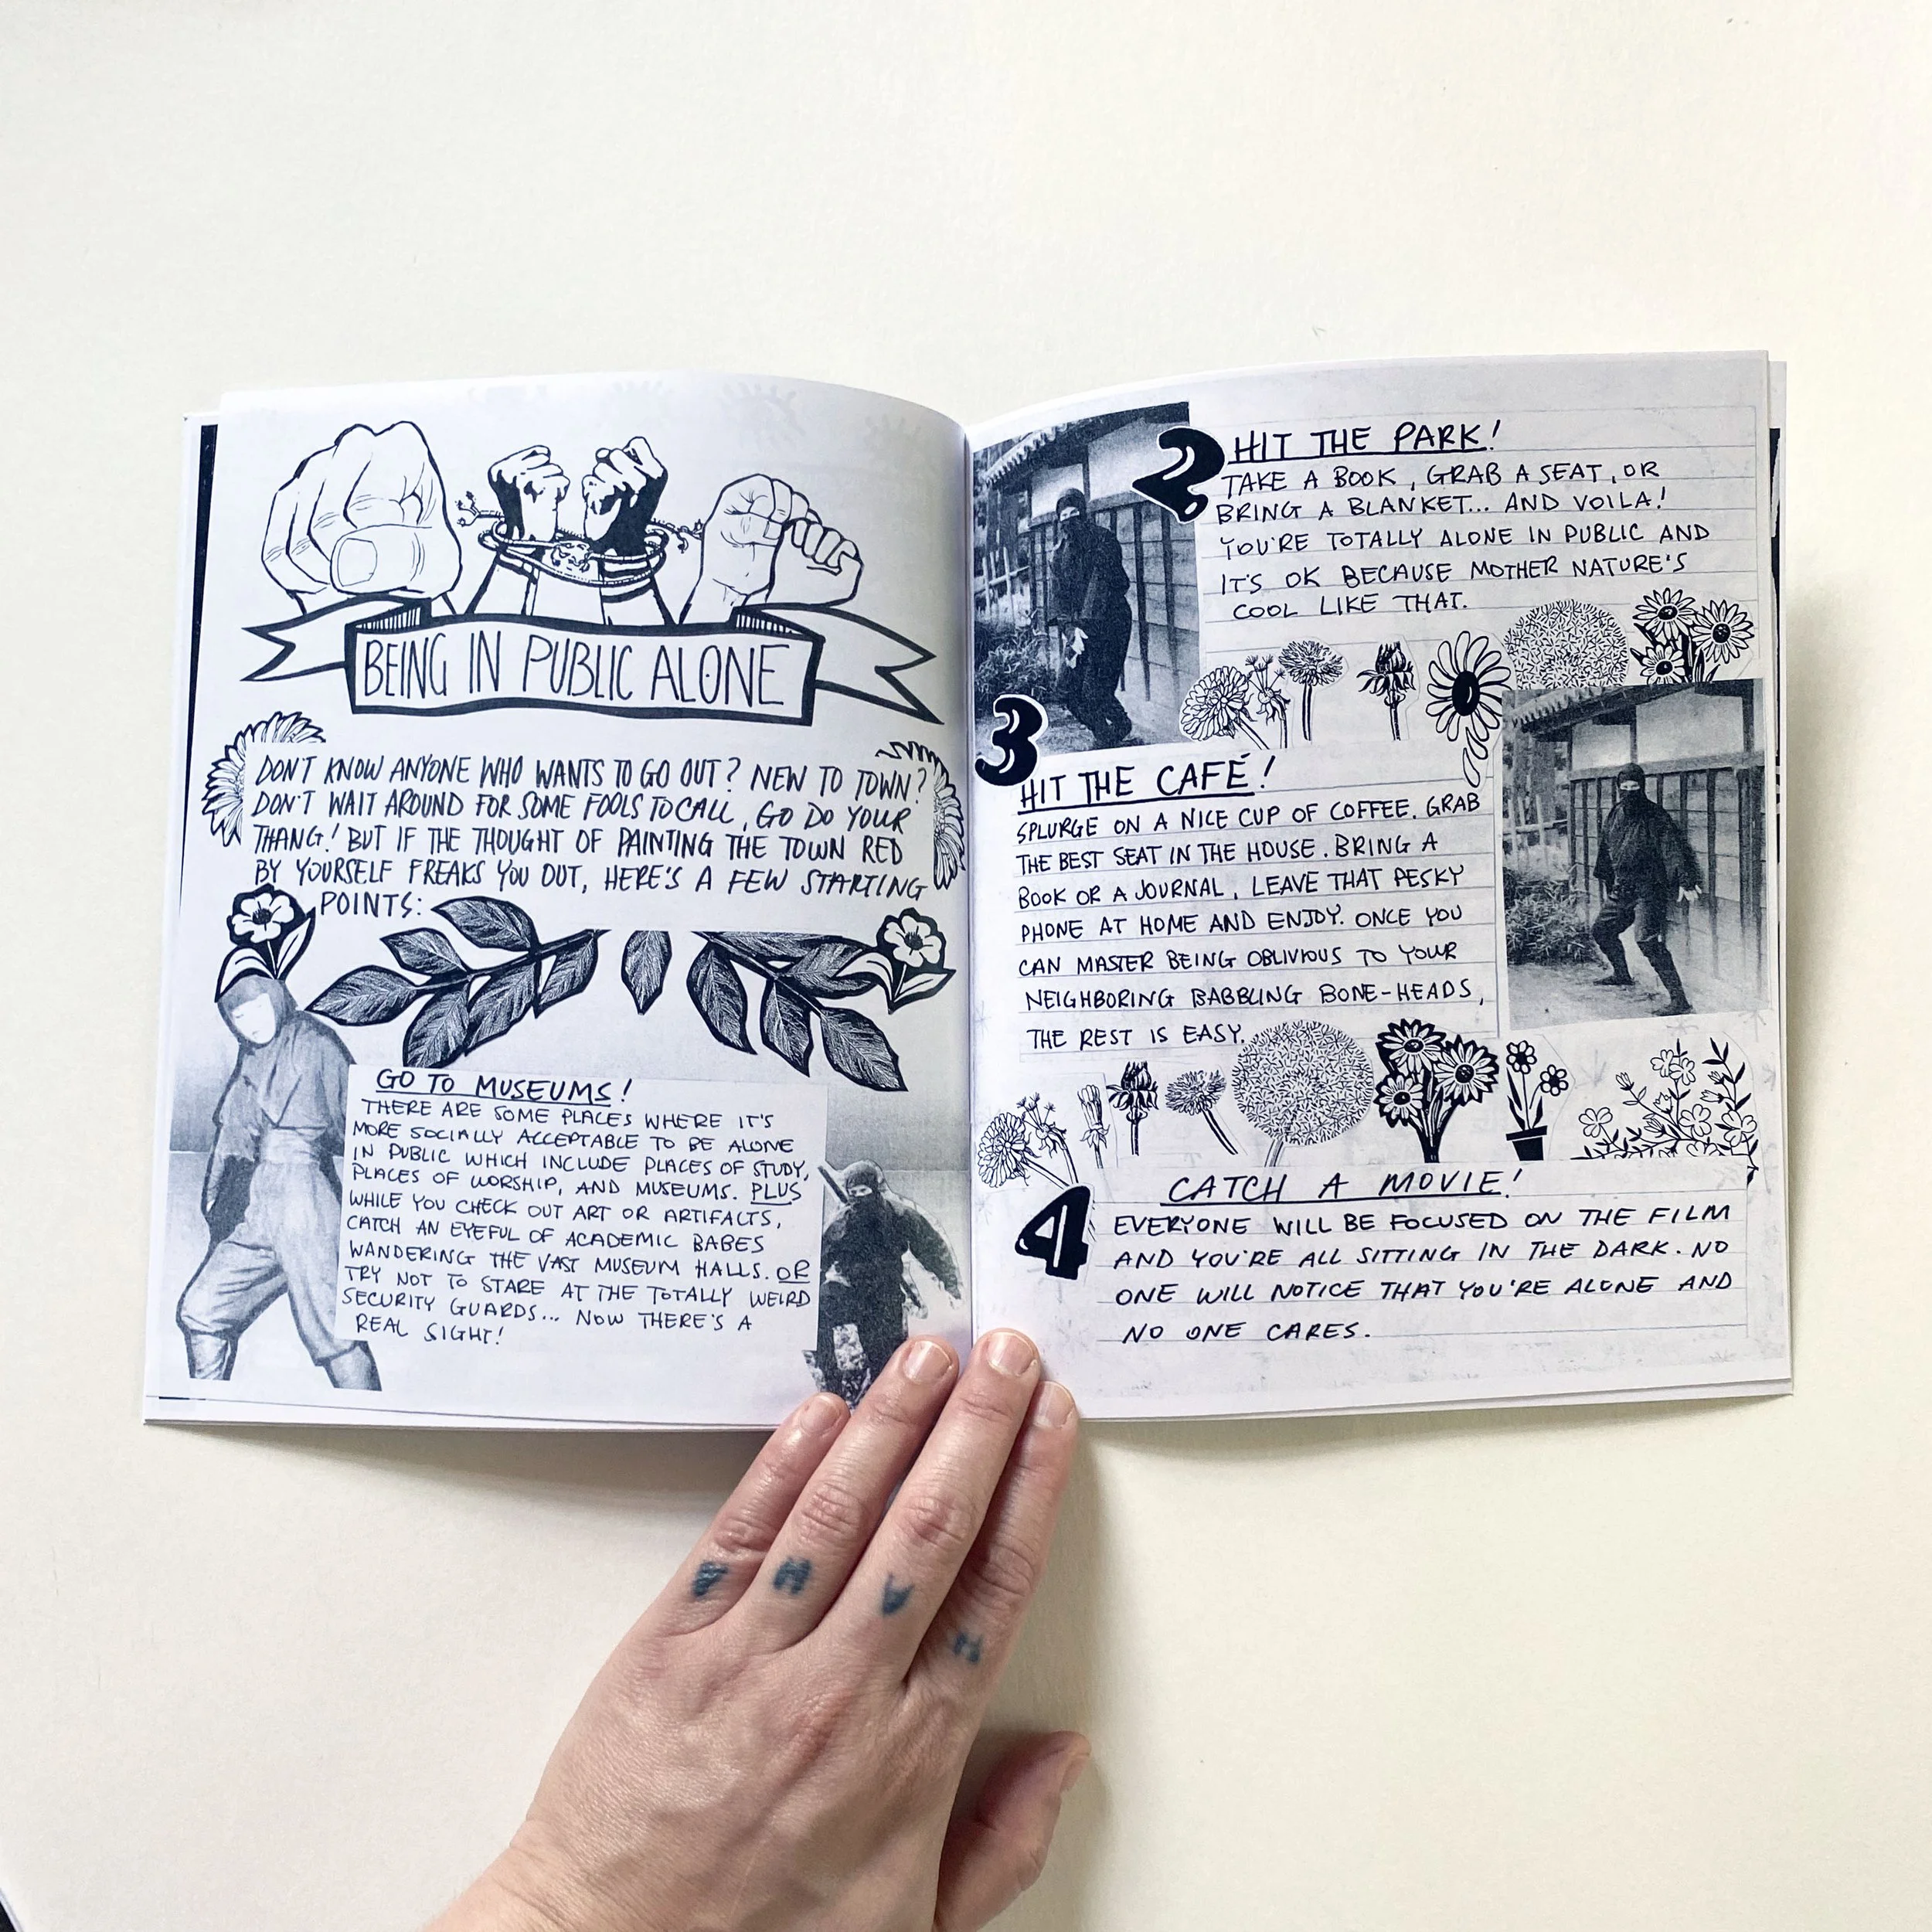 BEING IN PUBLIC ALONE
DON'T KNOW ANYONE WHO WANTS TO GO OUT? NEW TO TOWN?
DON'T WAIT AROUND FOR SOME FOOLS TO CALL, GO DO YOUR
THANG! BUT IF THE THOUGHT OF PAINTING THE TOWN RED
BY YOURSELF FREAKS YOU OUT, HERE'S A FEW STARTING
POINTS:
GO TO MUSEUMS!
THERE ARE SOME PLACES WHERE IT'S
MORE SOCIALLY ACCEPTABLE TO BE ALONE
IN PUBLIC WHICH INCLUDE PLACES OF STUDY,
PLACES OF WORSHIP, AND MUSEUMS. PLUS
WHILE YOU CHECK OUT ART OR ARTIFACTS,
CATCH AN EYEFUL OF ACADEMIC BABES
WANDERING THE VAST MUSEUM HALLS. OR
TRY NOT TO STARE AT THE TOTALLY WEIRD
SECURITY GUARDS... NOW THERE'S A
REAL SIGHT!
2 HIT THE PARK!
TAKE A BOOK, GRAB A SEAT, OR
BRING A BLANKET... AND VOILA!
YOU'RE TOTALLY ALONE IN PUBLIC AND
IT'S OK BECAUSE MOTHER NATURE'S
COOL LIKE THAT.
3
HIT THE CAFÉ!
SPLURGE ON A NICE CUP OF COFFEE. GRAB
THE BEST SEAT IN THE HOUSE. BRING A
BOOK OR A JOURNAL, LEAVE THAT PESKY
PHONE AT HOME AND ENJOY. ONCE YOU
CAN MASTER BEING OBLIVIOUS TO YOUR
NEIGHBORING BABBLING BONE-HEADS,
THE REST IS EASY.
4
CATCH A MOVIE!
EVERYONE WILL BE FOCUSED ON THE FILM
AND YOU'RE ALL SITTING IN THE DARK. NO
ONE WILL NOTICE THAT YOU'RE ALONE AND
NO ONE CARES.